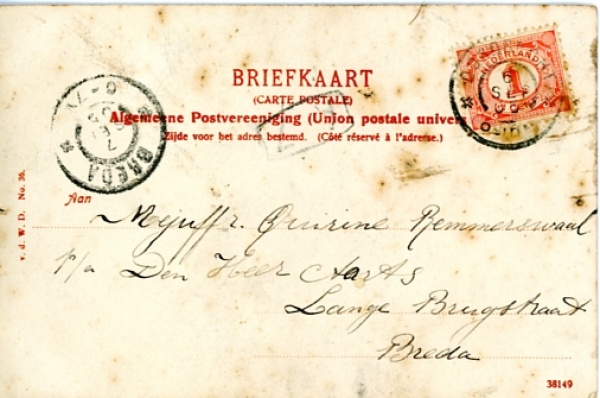 BRIEFKAART
(CARTE POSTALE)
Algemeene Postvereeniging (Union postale univer
Zijde voor het adres bestemd. (Côté réservé à l'adresse.)
NEDERLAND
1
BREDA
Aan
Mejuffr. Quirine Remmerswaal
p/a Den Heer Aarts
Lange Brugstraat
Breda
v. d. W. D. No. 36.
38149